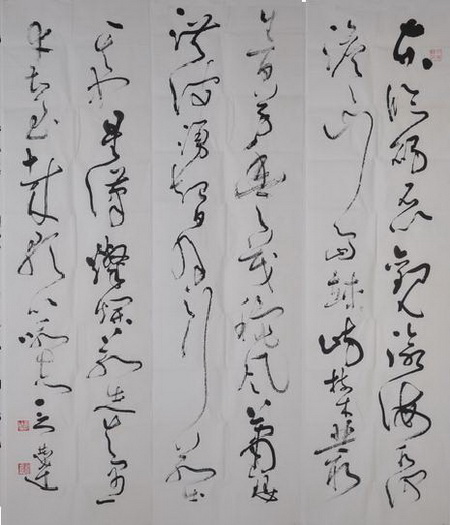 东临碣石以观沧海水何
澹澹山岛竦峙树木丛
生百草丰茂秋风萧瑟
洪波涌起日月之行若出
其中星汉灿烂若出其里
幸甚至哉歌以咏志